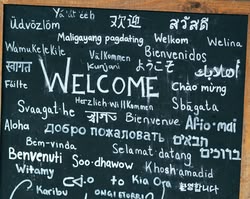 Yá'át'ééh
Üdvözlöm 欢迎 გამარჯობა
Maligayang pagdating Welkom Welina
Wamukelekile Välkommen Bienvenidos
स्वागत Kunjani ようこそ
Fáilte WELCOME Chào mừng
Herzlich willkommen
Svaagat·he Bienvenue Sbāgata
Aloha Afio mai
Добро пожаловать
Bem-vinda הבאים ברוכים
Benvenuti Selamat·datang
Soo·dhawow Khoshamadid
Witamy to Kia Ora 환영합니다
Karibu